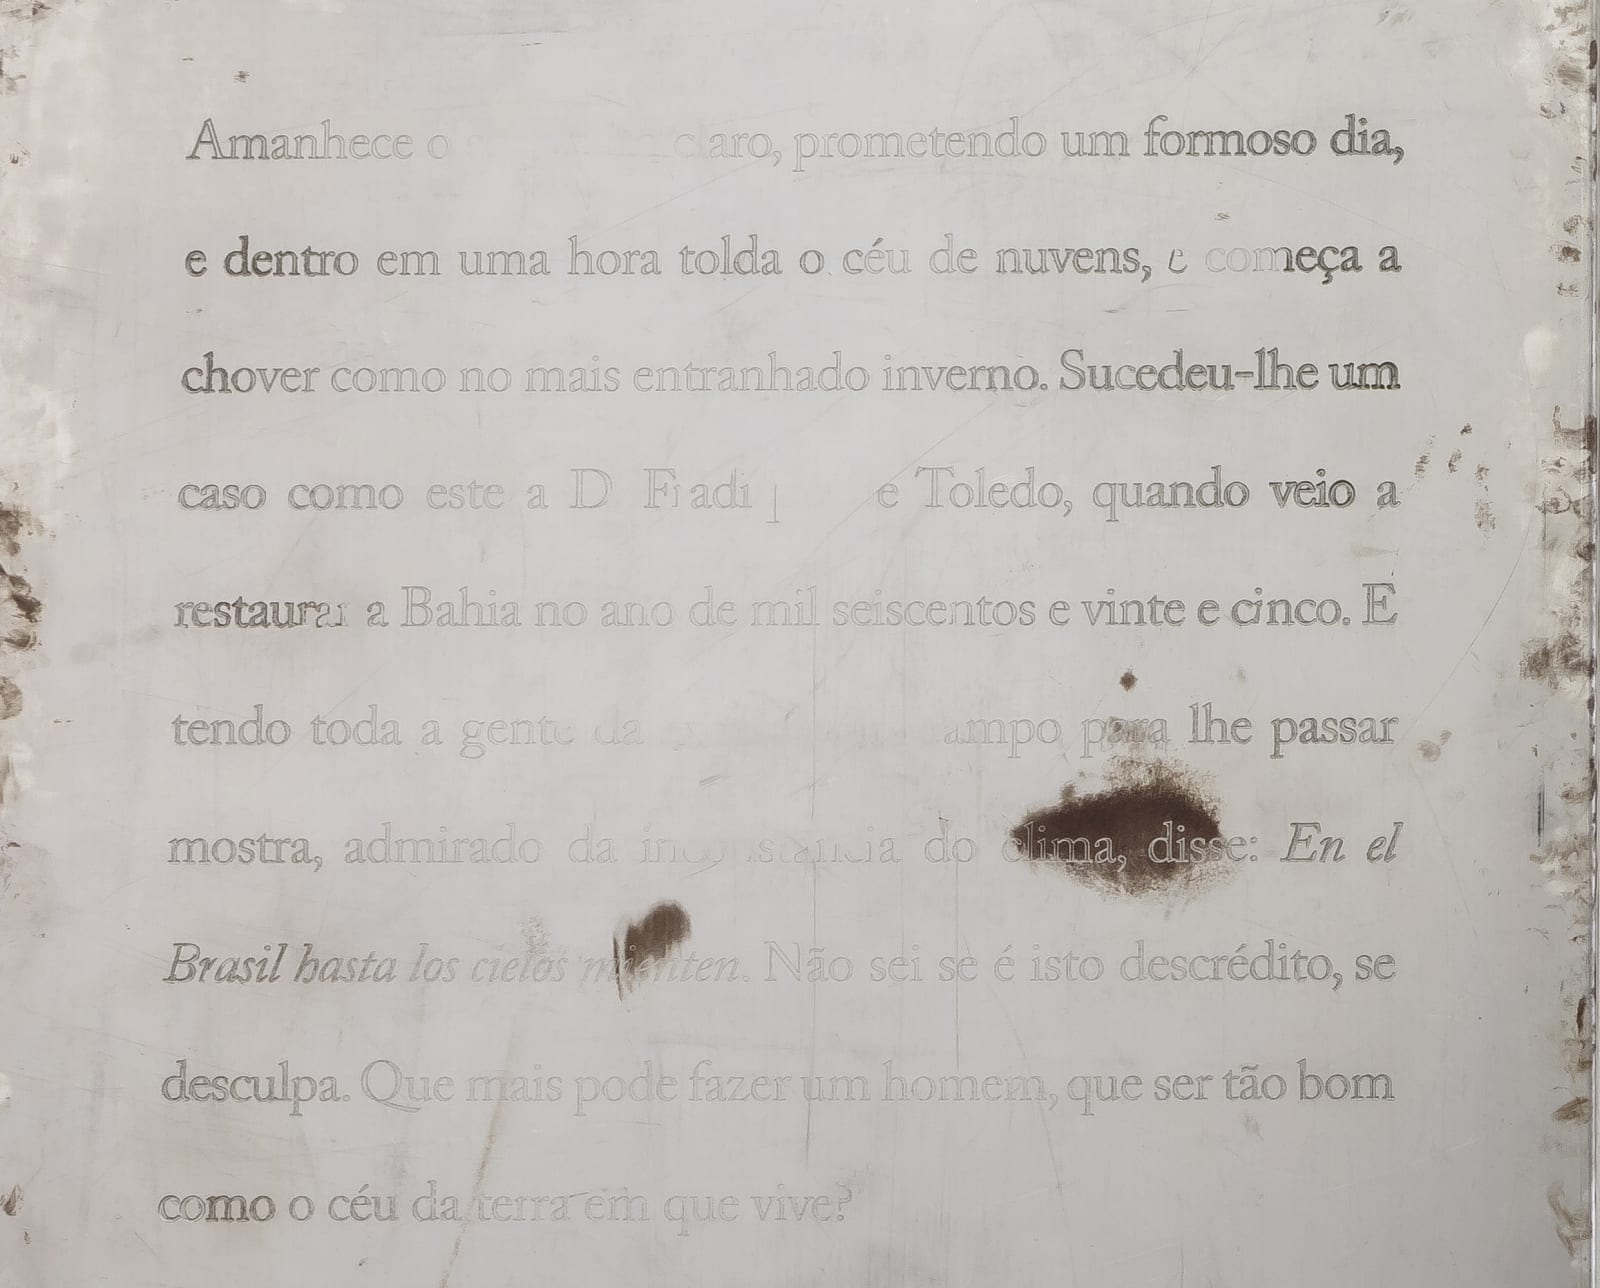 Amanhece o claro, prometendo um formoso dia,
e dentro em uma hora tolda o céu de nuvens, e começa a
chover como no mais entranhado inverno. Sucedeu-lhe um
caso como este a D Fradi e Toledo, quando veio a
restaurar a Bahia no ano de mil seiscentos e vinte e cinco. E
tendo toda a gente da campo para lhe passar
mostra, admirado da inconstância do clima, disse: En el
Brasil hasta los cielos mienten. Não sei se é isto descrédito, se
desculpa. Que mais pode fazer um homem, que ser tão bom
como o céu da terra em que vive?